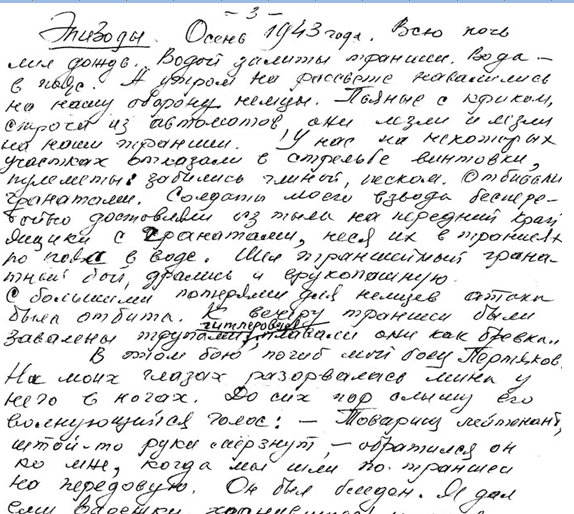 - 3 -
Эпизоды. Осень 1943 года. Всю ночь
лил дождь. Водой залиты траншеи. Вода -
в пояс. А утром на рассвете навалились
на нашу оборону немцы. Пьяные с криком,
строча из автоматов они лезли и лезли
на наши траншеи. У нас на некоторых
участках отказали в стрельбе винтовки,
пулеметы: забились глиной, песком. Отбивали
гранатами. Солдаты моего взвода беспере-
бойно доставляли из тыла на передний край
ящики с гранатами, неся их в траншеях
по пояс в воде. Шел траншейный грана-
тный бой, дрались и врукопашную.
С большими потерями для немцев атака
была отбита. К вечеру траншеи были
завалены трупами гитлеровцев, плавали они как бревна.
В этом бою погиб мой боец Пермяков.
На моих глазах разорвалась мина у
него в ногах. До сих пор слышу его
волнующийся голос: - Товарищ лейтенант,
штой-то руки мерзнут, - обратился он
ко мне, когда мы шли по траншеи
на передовую. Он был бледен. Я дал
ему варежки